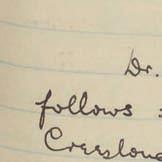 Dr.
follows :
Creeslou